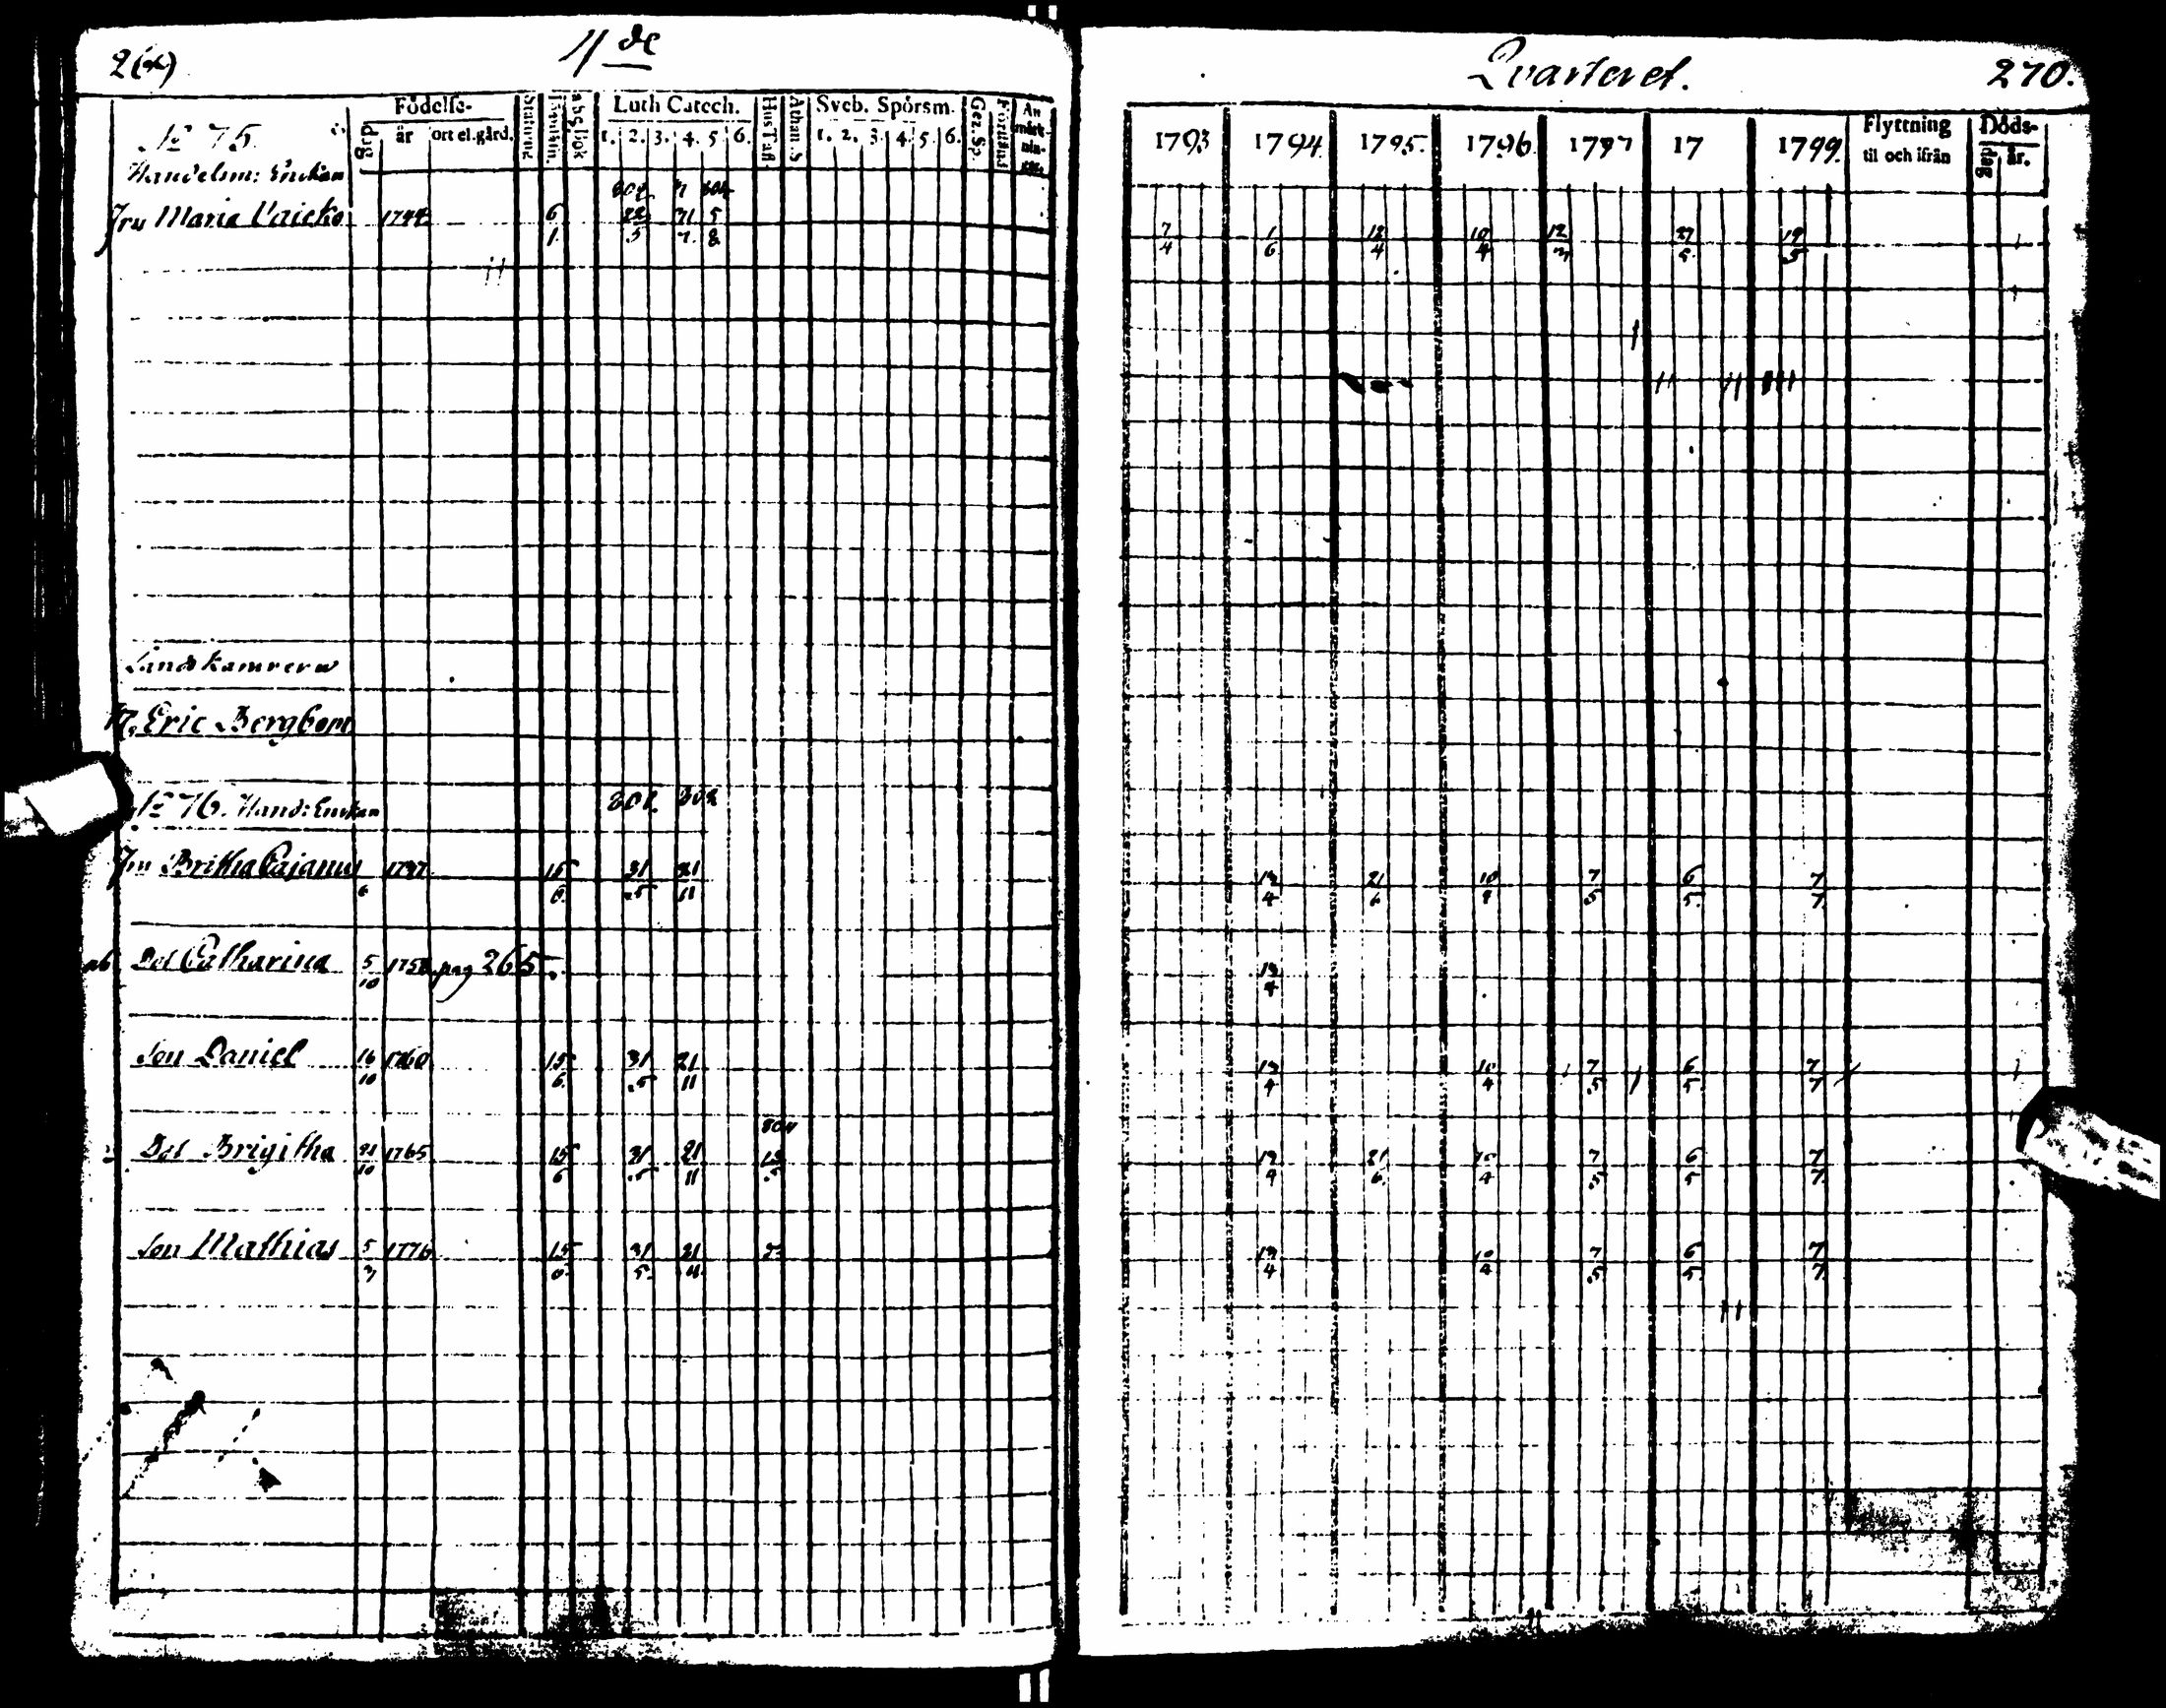 4de
Qvarteret.
270.
Födelse-
dag
år
ort el. gård.
Luth Catech.
1. 2. 3. 4. 5 6.
Hus Tafl.
Athan. S
Sveb. Spörsm.
1. 2. 3. 4. 5. 6.
Gez. Sp.
An
märk-
nin-
gar.
1793 1794. 1795. 1796. 1797 17 1799.
Flyttning
til och ifrån
Döds-
dag år.
No 75.
Handelsm: Enckan
Fru Maria 6/1 22/5 21/7 5/8 7/4 1/6 12/4 10/4 27/5 19/5
Landskamrerar
Hr Eric Bergbom
No 76. Hand: Enckan 802. 802
Fru Britha Cajanus 15/6 31/5 21/11 13/4 21/6 10/4 7/5 6/5 7/7
Dot Catharina 5/10 pag 265 13/4
Son Daniel 16/10 1760 15/6 31/5 21/11 13/4 10/4 7/5 6/5 7/7
804
Dot Brigitha 21/10 1765 15/6 31/5 21/11 13/5 13/4 21/6 10/4 7/5 6/5 7/7
Son Mathias 5/3 1776 15/6 31/5 21/11 13/4 10/4 7/5 6/5 7/7